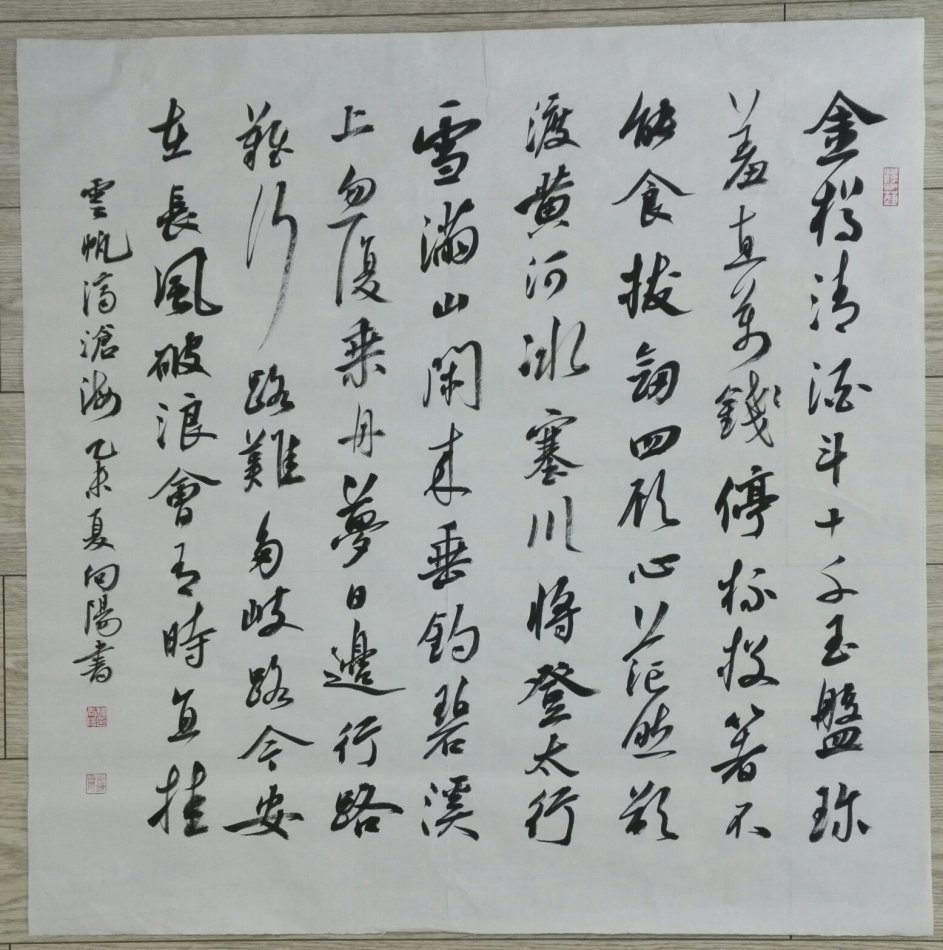 金樽清酒斗十千玉盤珍
羞直萬錢停杯投箸不
能食拔劍四顾心茫然欲
渡黄河冰塞川將登太行
雪滿山閑来垂釣碧溪
上忽復乘舟夢日邊行路
難行路難多岐路今安
在長風破浪會有時直挂
雲帆濟滄海乙未夏向陽書